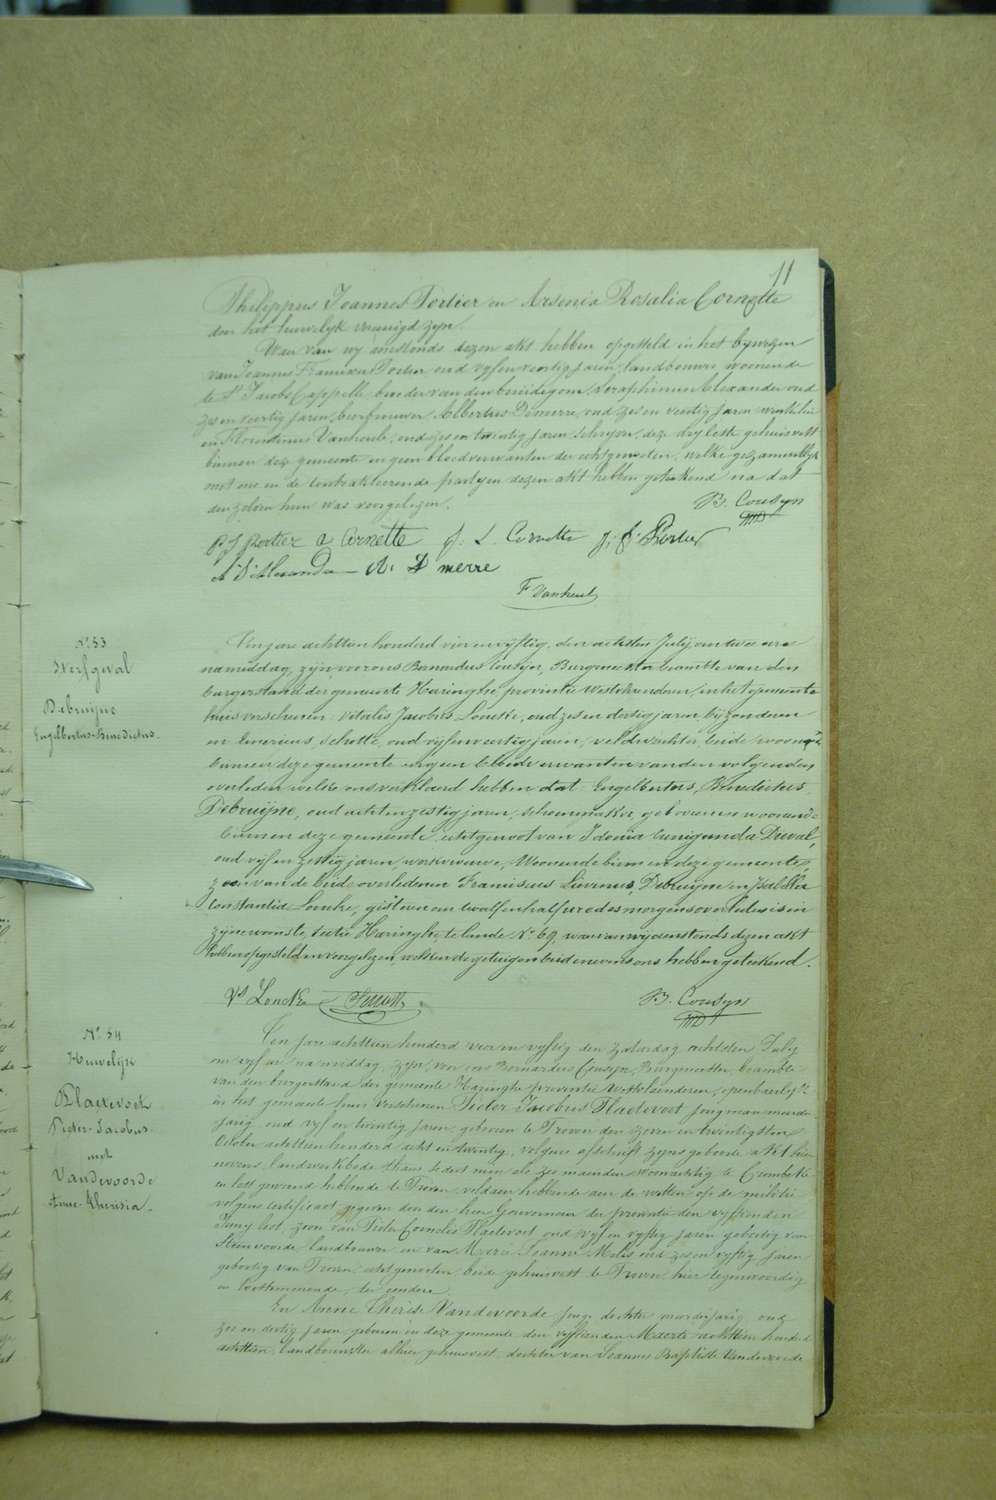 11
Philippus Joannes Portier en Arsenia Rosalia Cornette
door het huwelyk vereenigd zyn.
Waer van wy aenstonds dezen akt hebben opgesteld in het bywezen
van Joannes Franciscus Portier oud vyfenveertig jaren, landbouwer, woonende
te St Jacobs Cappelle, broeder van den bruidegom, Seraphinus Alexander oud
zesenveertig jaren, Albertus Demerre, oud zes en veertig jaren winkelier
en Florentinus Vanheule, oud zes en twintig jaren, schryver, deze dry leste gehuisvest
binnen deze gemeente en geen bloedverwanten der echtgenoten, welke gezamentlyk
met ons en de contrakteerende partyen dezen akt hebben geteekend na dat
den zelven hun was voorgelezen.
B. Cousyn
P J Portier a Cornette J. L. Cornette J. f. Portier
S Alexander A. D merre
F Vanheule
N. 53
Sterfgeval
Debruijne
Engelbertus-Benedictus.
Ten jare achttien honderd vier en vyftig, den achtsten July om twee uren
namiddag, zyn voor ons Bernardus Cousyn, Burgmeester beambte van den
burgerstand der gemeente Haringhe provintie Westvlaenderen, in het gemeente
huis verschenen Vitalis Jacobus Loncke, oud zes en dertig jaren, byzonderen
en Severinus Schotte, oud vyfenveertig jaren, veldwachter beide woonende
binnen deze gemeente en geen bloedverwanten van den volgenden
overleden welke ons verklaerd hebben dat Engelbertus, Benedictus,
Debruijne, oud achtenzestig jaren, schoenmaker geboren en woonende
binnen deze gemeente, echtgenoot van Idonia Cunigunda Duval,
oud vyf en zestig jaren werkvrouwe, Woonende binnen deze gemeente,
zoon van de beide overledenen Franciscus Livinus, Debruijne en Isabella
Constantia Loncke, gisteren om twalf en half ure des morgens overleden is in
zyne woonste, sectie Haringhe, te lande N. 69, waer van wy aenstonds dezen akt
hebben opgesteld en voorgelezen, welken de getuigen beide nevens ons hebben geteekend.
Vs Loncke Schotte B. Cousyn
N. 54
Huwelijk
Plaetevoet
Pieter-Jacobus
met
Vandevoorde
Anne-Theresia.
Ten jare achttien honderd vier en vyftig den zaturdag achtsten July
om vyf uren namiddag, zyn voor ons Bernardus Cousyn, Burgmeester, beambte
van den burgerstand der gemeente Haringhe provintie Westvlaenderen, openbaerlyk
in het gemeente huis verschenen Pieter Jacobus Plaetevoet jongman meerder-
jarig, oud vyf en twintig jaren, geboren te Proven den zeven en twintigsten
October achttien honderd acht en twintig, volgens afschrift zyns geboorte akt hier
nevens, landwerkbode thans sedert min als zes maenden woonachtig te Crombeke
en lest gewoond hebbende te Proven, voldaen hebbende aen de wetten op de militie
volgens certificaet gegeven door den heer Gouverneur der provintie den vyftienden
Juny lest, zoon van Pieter Cornelis Plaetevoet, oud vyf en vyftig jaren geboortig van
Steenvoorde, landbouwer en van Marie Jeanne Malis oud zes en vyftig jaren
geboortig van Proven, echtgenooten, beide gehuisvest te Proven, hier tegenwoordig
en toestemmende, ter eendere
En Anne Therèse Vandevoorde jonge dochter meerderjarig, oud
zes en dertig jaren, geboren in deze gemeente den vyftienden Maerte achttien honderd
achttien, landbouwster alhier gehuisvest, dochter van Joannes Baptiste Vandevoorde